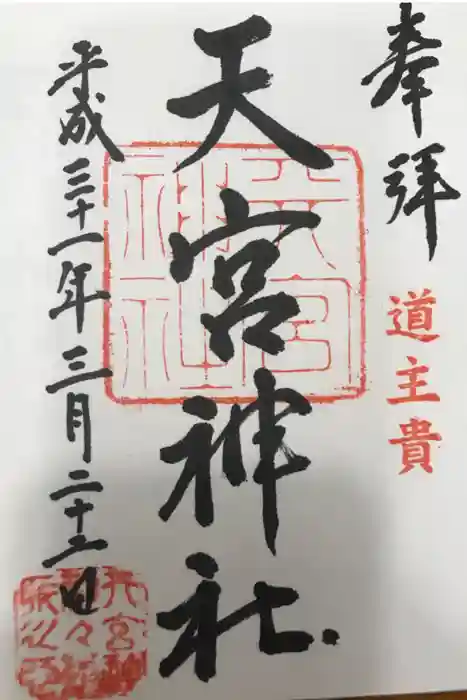 奉拝
道主貴
天宮神社
天宮
神社
平成三十一年三月二十二日